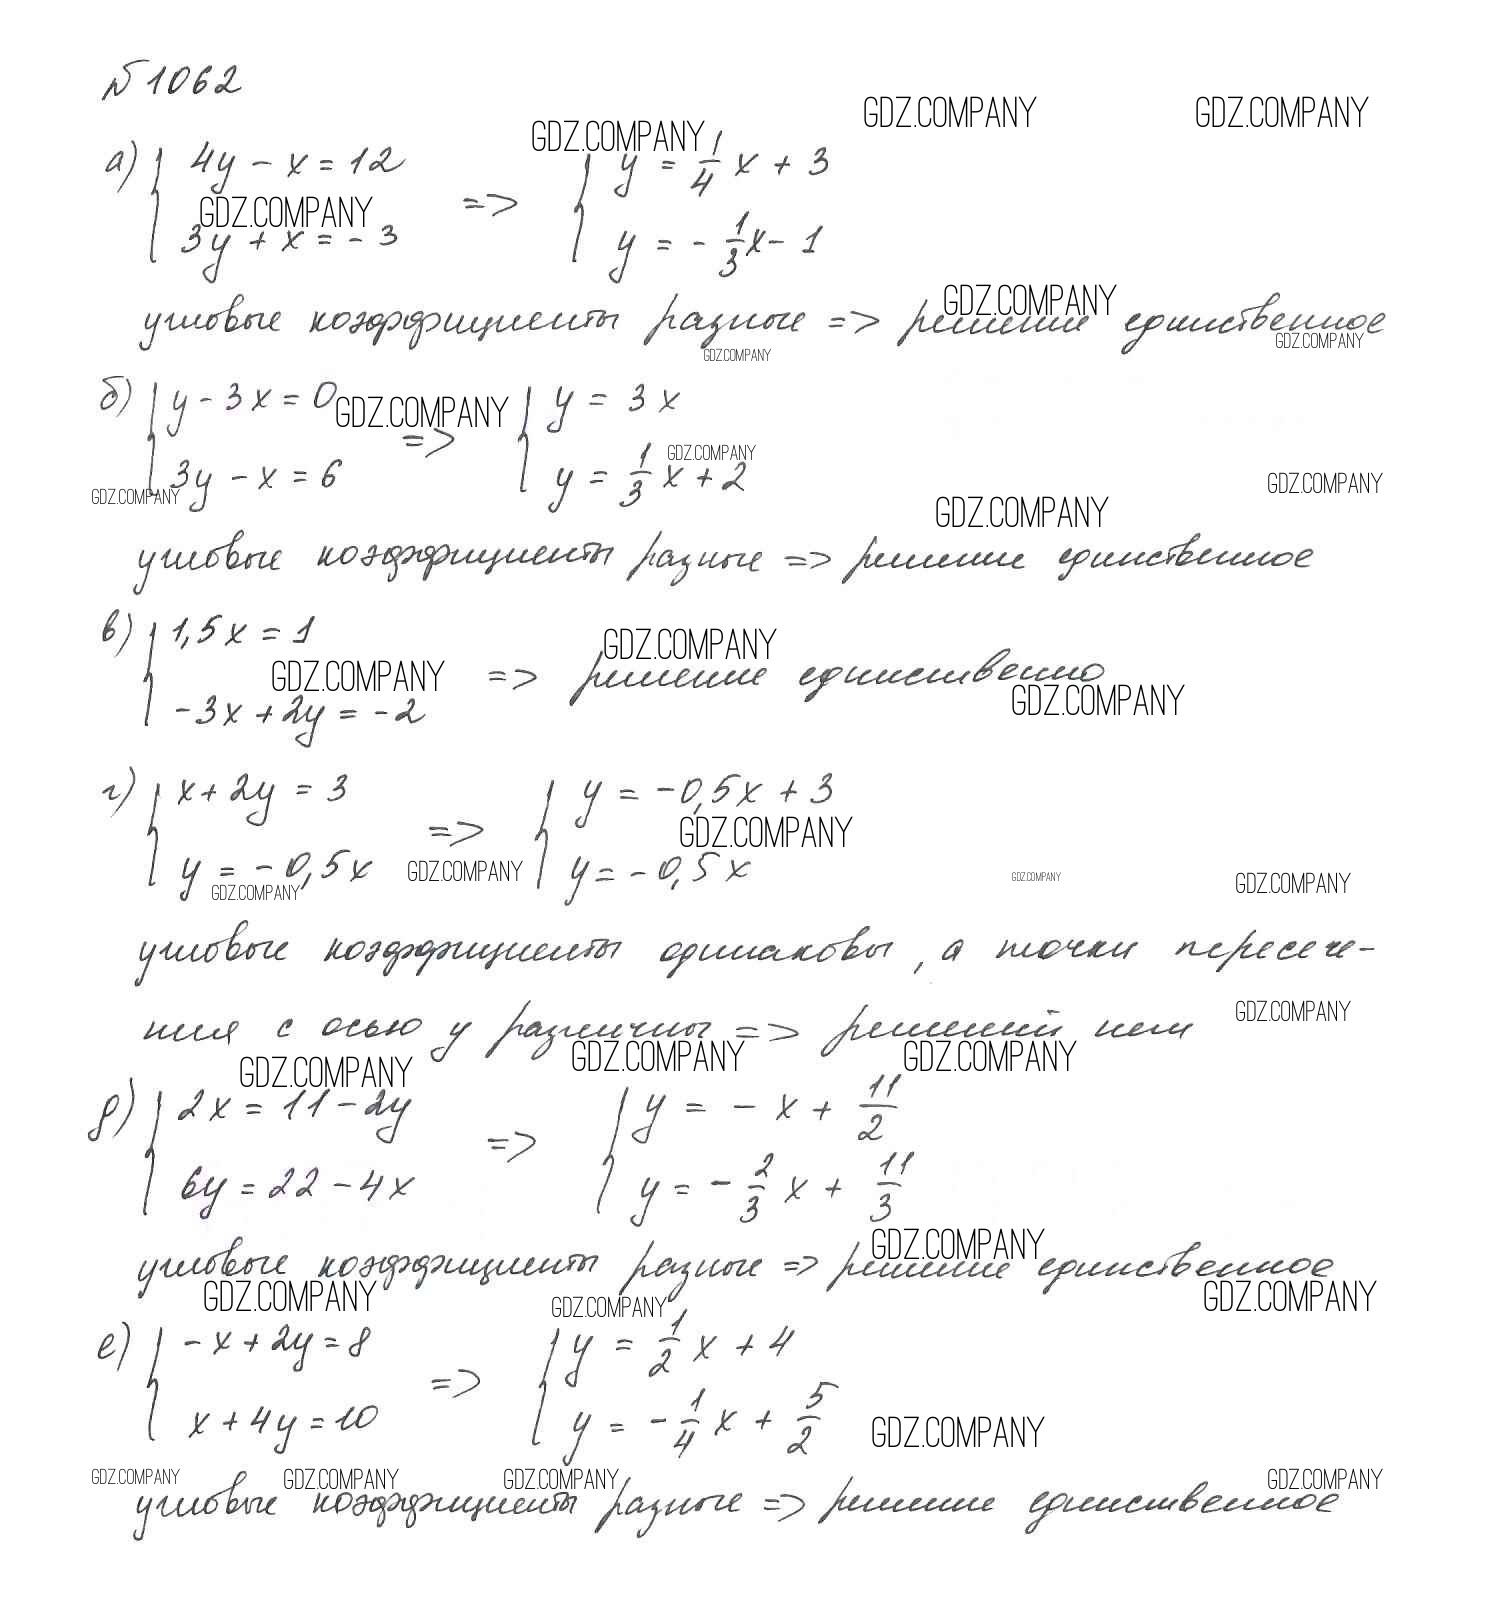 №1062
GDZ.COMPANY GDZ.COMPANY GDZ.COMPANY
а) { 4y - x = 12 y = 1/4 x + 3
GDZ.COMPANY => {
3y + x = - 3 y = - 1/3 x - 1
GDZ.COMPANY
угловые коэффициенты разные => решение единственное
GDZ.COMPANY GDZ.COMPANY
б) { y - 3x = 0 GDZ.COMPANY y = 3x
=> { GDZ.COMPANY
3y - x = 6 y = 1/3 x + 2
GDZ.COMPANY GDZ.COMPANY GDZ.COMPANY
угловые коэффициенты разные => решение единственное
в) { 1,5x = 1 GDZ.COMPANY
GDZ.COMPANY => решение единственно
-3x + 2y = -2 GDZ.COMPANY
г) { x + 2y = 3 y = -0,5x + 3
=> { GDZ.COMPANY
y = -0,5x GDZ.COMPANY y = -0,5x
GDZ.COMPANY GDZ.COMPANY GDZ.COMPANY
угловые коэффициенты одинаковы, а точки пересече-
ния с осью y различны => решений нет
GDZ.COMPANY
GDZ.COMPANY GDZ.COMPANY GDZ.COMPANY
д) { 2x = 11 - 2y y = - x + 11/2
=> {
6y = 22 - 4x y = - 2/3 x + 11/3
GDZ.COMPANY
угловые коэффициенты разные => решение единственное
GDZ.COMPANY GDZ.COMPANY GDZ.COMPANY
е) { -x + 2y = 8 y = 1/2 x + 4
=> {
x + 4y = 10 y = - 1/4 x + 5/2
GDZ.COMPANY
GDZ.COMPANY GDZ.COMPANY GDZ.COMPANY GDZ.COMPANY
угловые коэффициенты разные => решение единственное